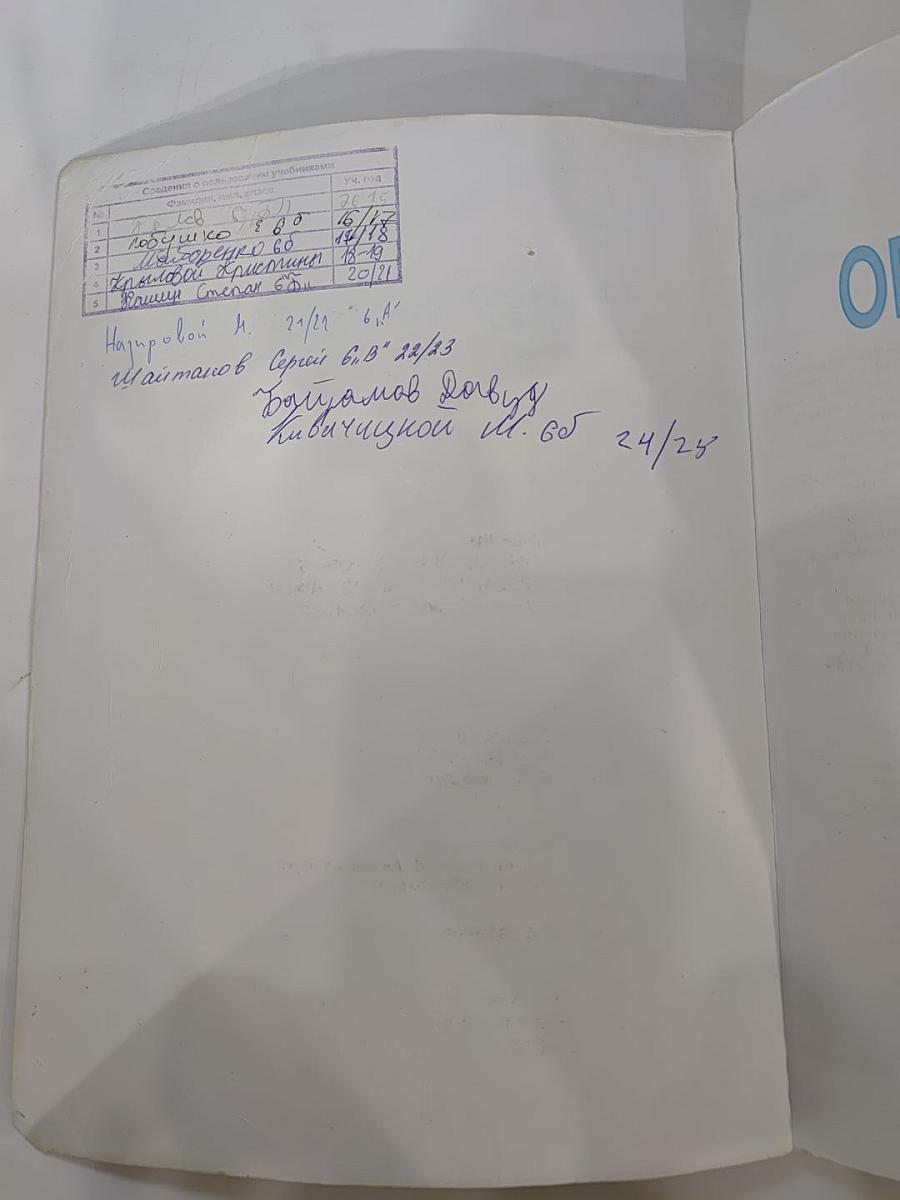 Сведения о пользовании учебниками
№ Фамилия, имя, класс Уч. год
1
2 Лобушко Е 6 б 16/17
3 Майоренко 6б 17/18
4 Крыловой Кристины 18-19
5 Кашин Степан 6"Б" 20/21
Назировой М. 21/22 6 "А"
Шайтанов Сергей 6 "В" 22/23
Байрамов Давуд
М. 6б 24/25